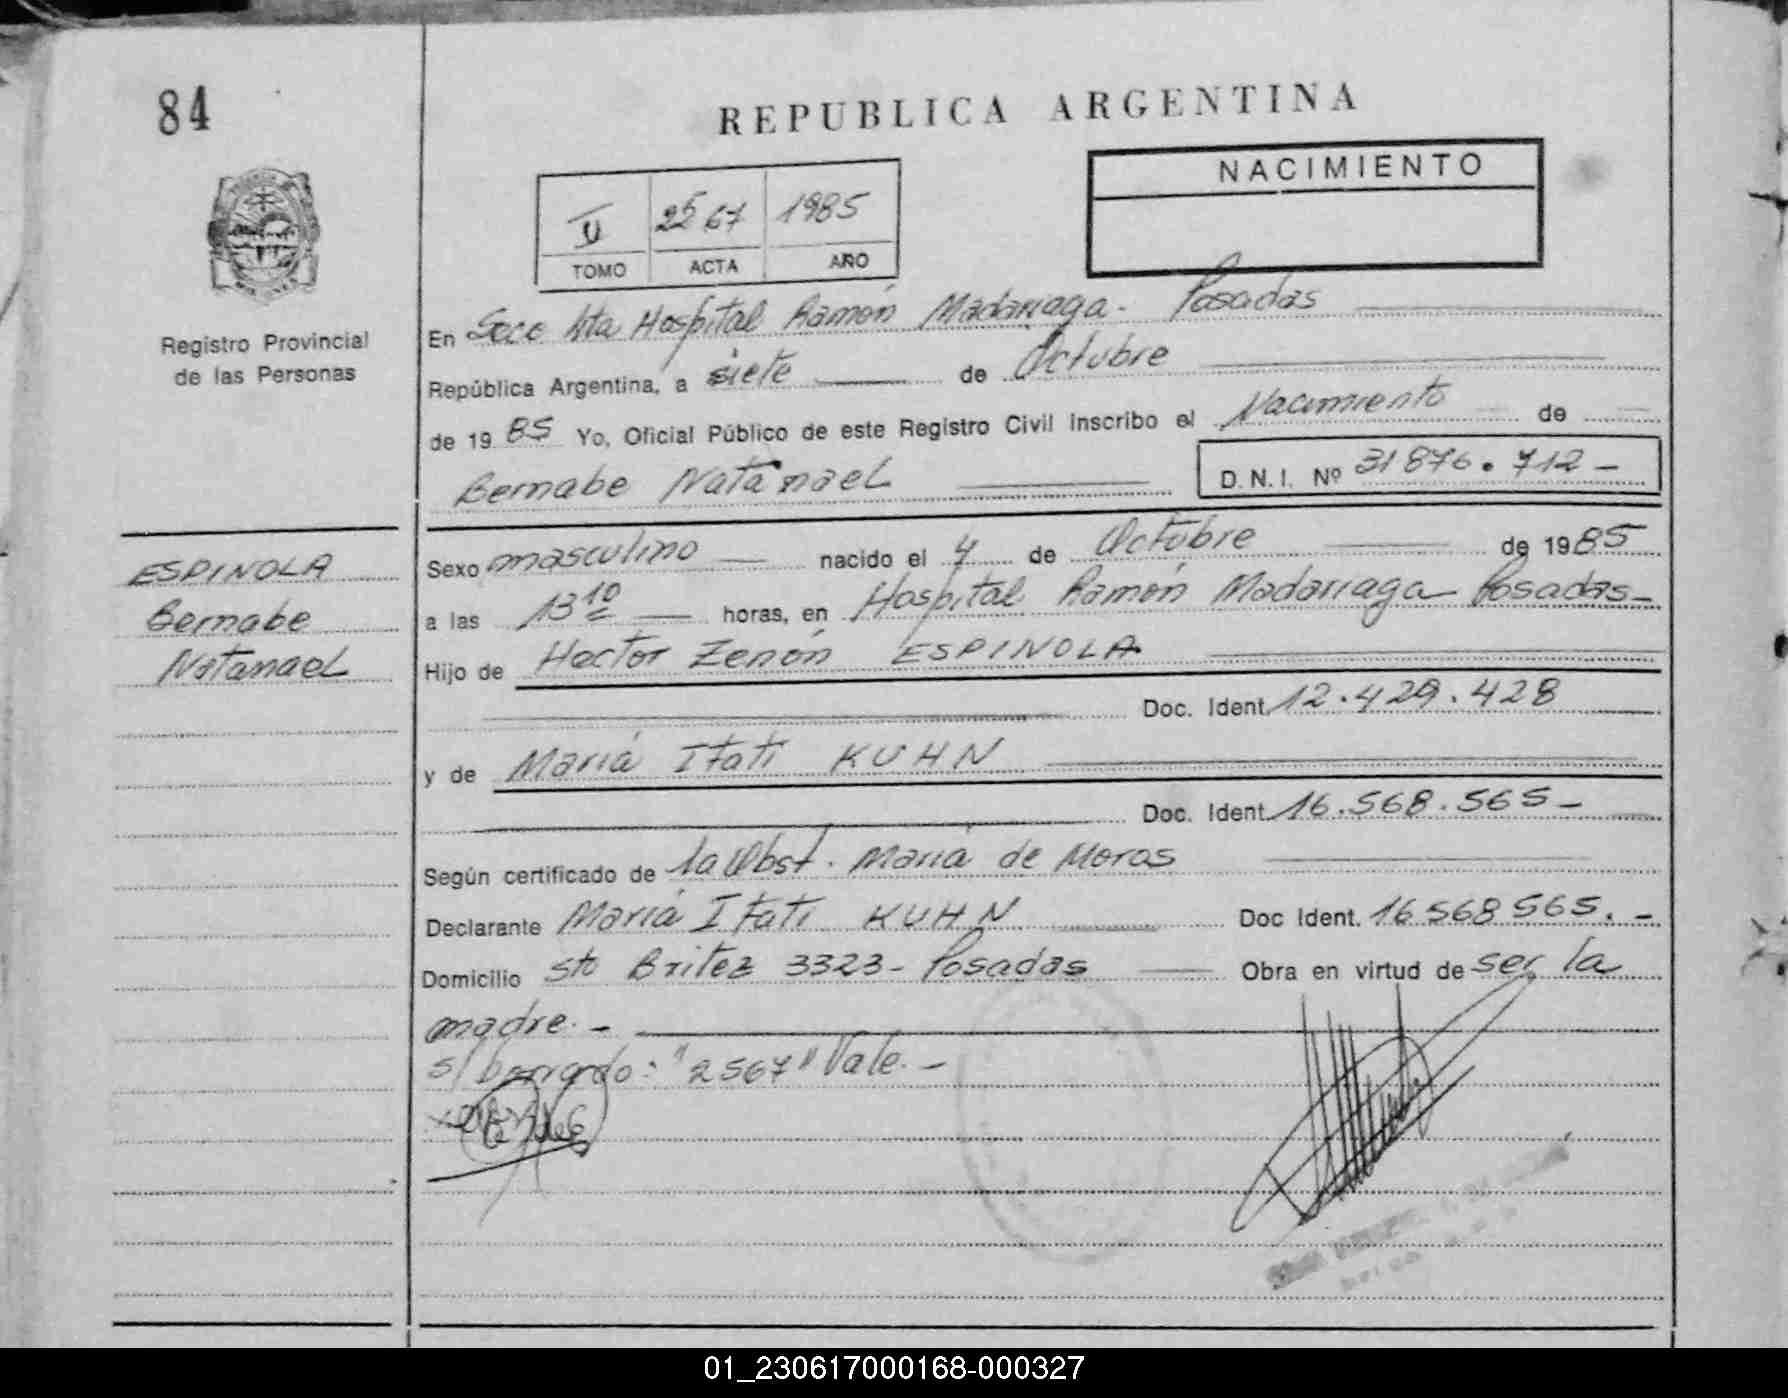 84
REPUBLICA ARGENTINA
NACIMIENTO
II 2567 1985
TOMO ACTA AÑO
Registro Provincial
de las Personas
En Secc 4ta Hospital Ramón Madariaga - Posadas
República Argentina, a siete de Octubre
de 1985 Yo, Oficial Público de este Registro Civil inscribo el Nacimiento de
Bernabe Natanael D.N.I. Nº 31876.712-
ESPINOLA
Bernabe
Natanael
Sexo masculino nacido el 4 de Octubre de 1985
a las 13 10 horas, en Hospital Ramón Madariaga Posadas-
Hijo de Hector Zenón ESPINOLA
Doc. Ident. 12.429.428
y de Maria Itati KUHN
Doc. Ident. 16.568.565-
Según certificado de la Obst. Maria de Moras
Declarante Maria Itati KUHN Doc Ident. 16568565.-
Domicilio Sto Britez 3323- Posadas Obra en virtud de ser la
madre.-
s/borrado: "2567" Vale.-
01_230617000168-000327